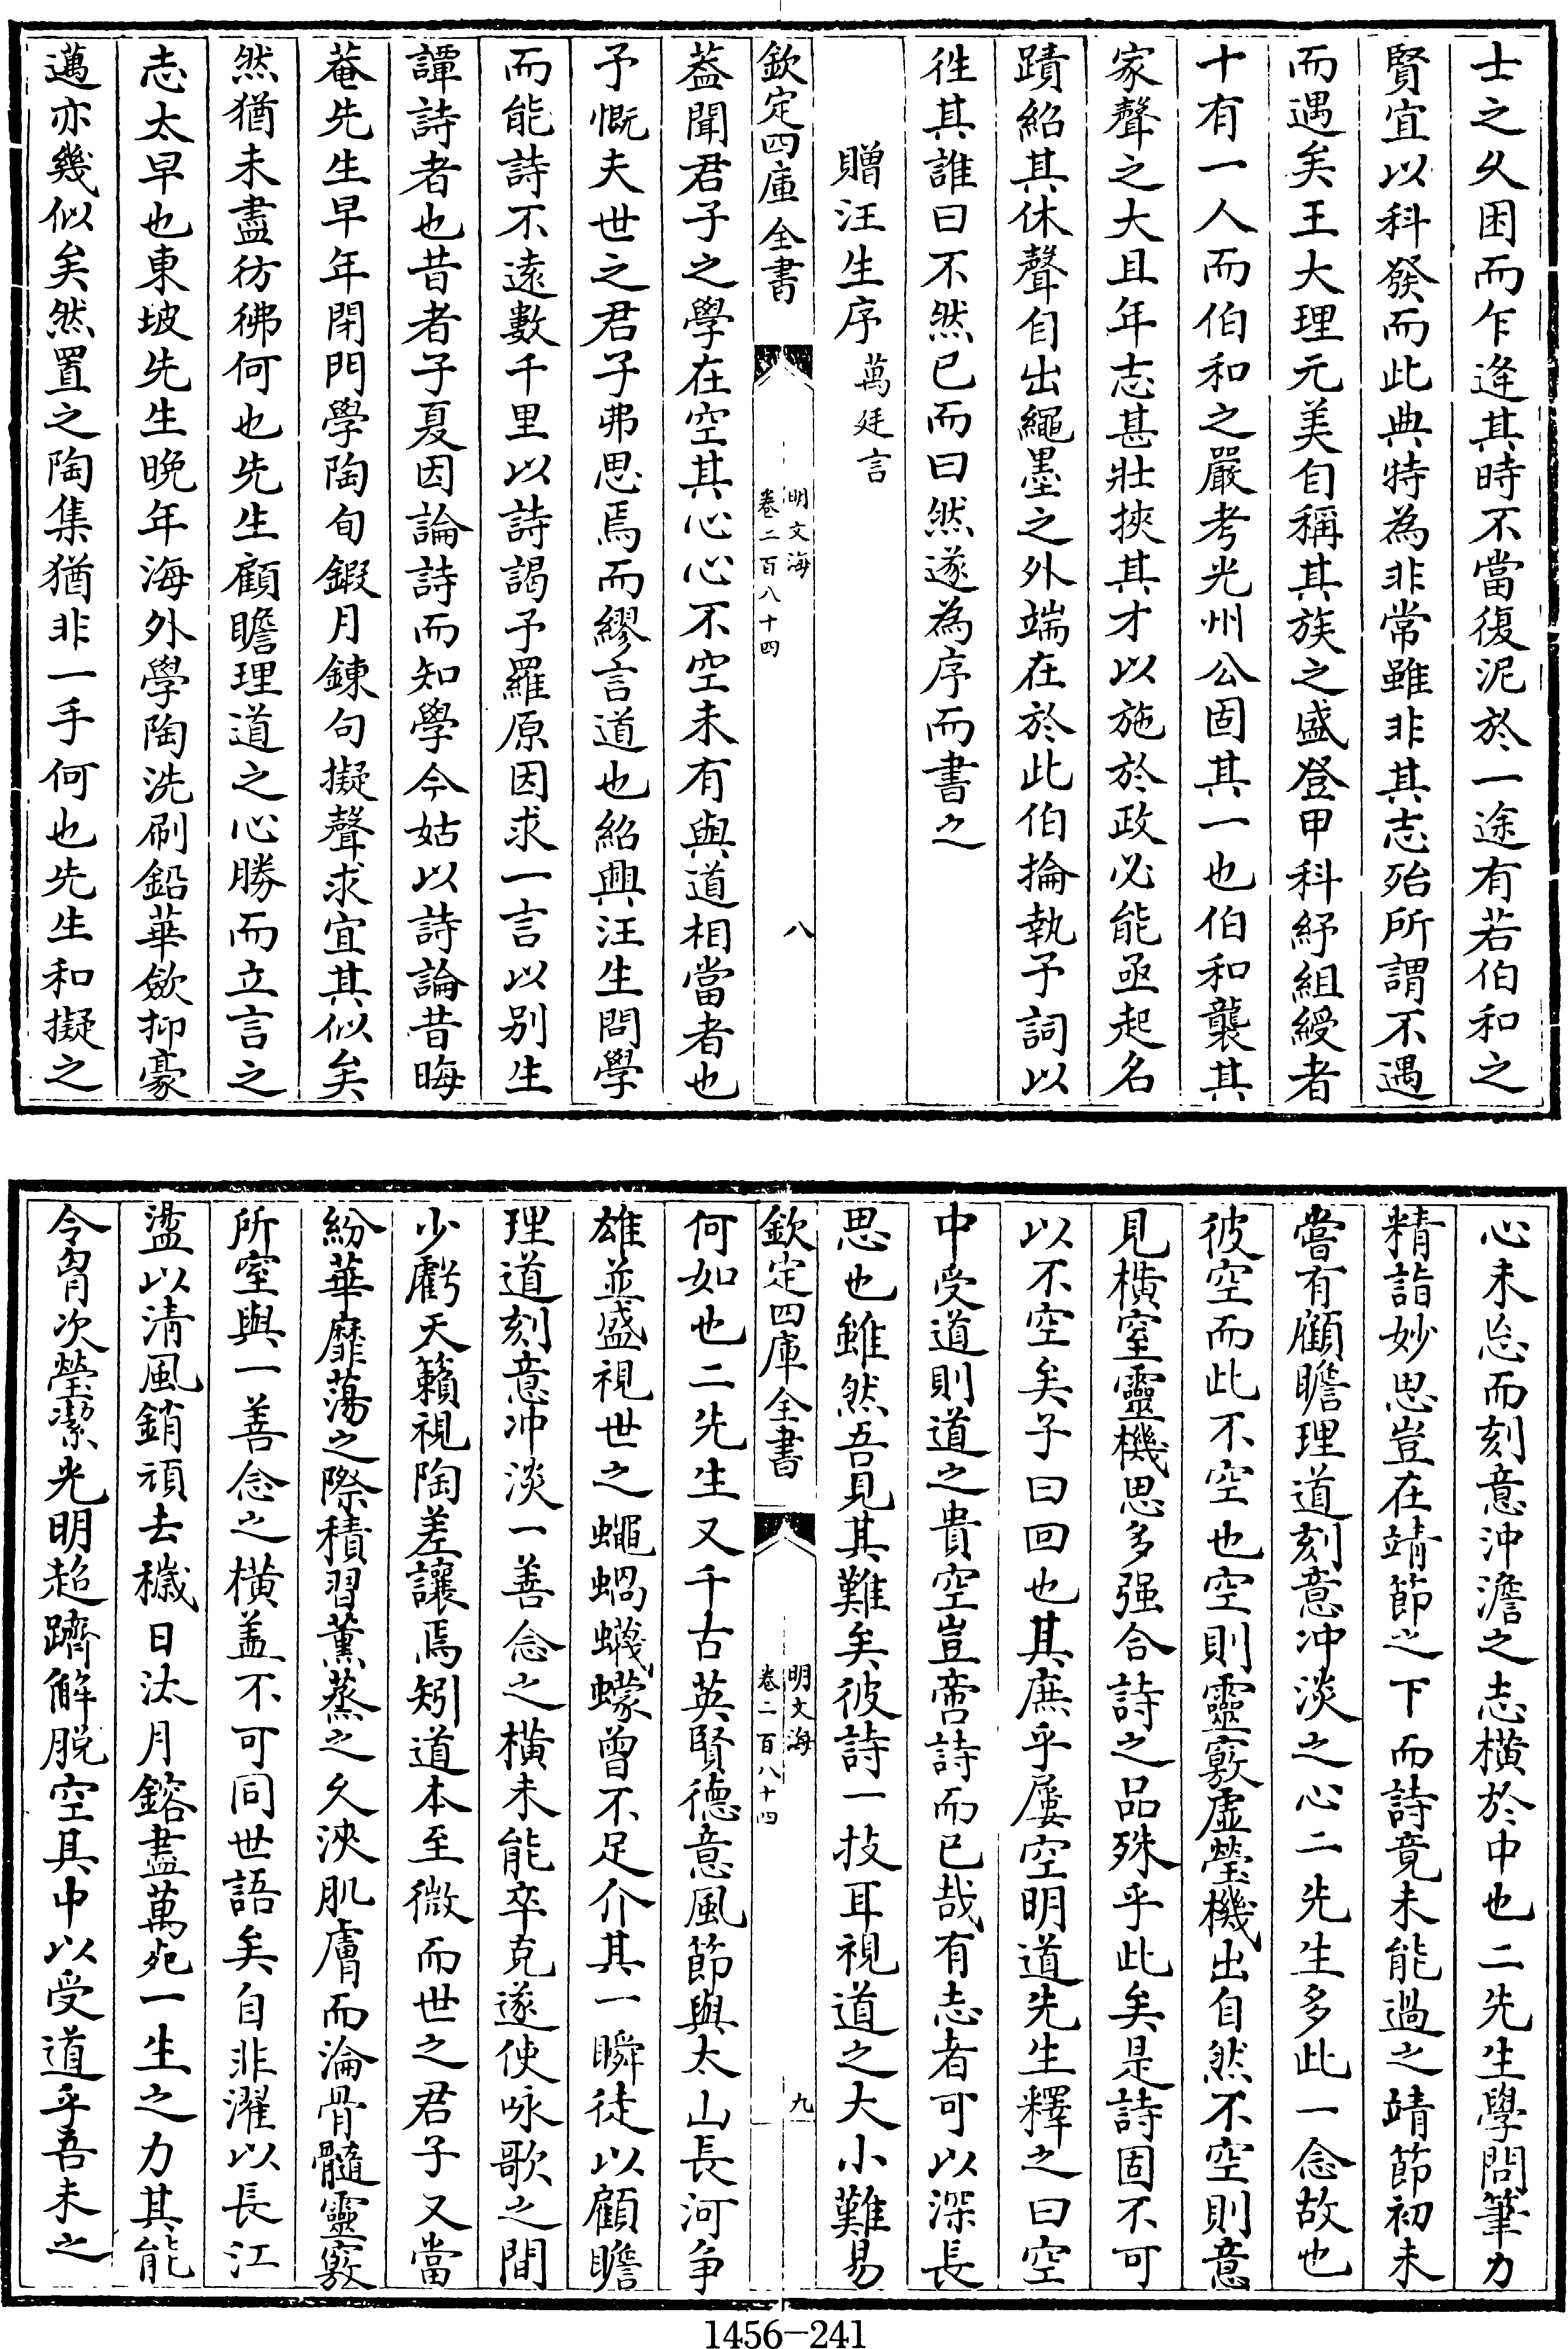 士之久困而乍逄其時不當復泥於一途有若伯和之
賢宜以科發而此典特為非常雖非其志殆所謂不遇
而遇矣王大理元美自稱其族之盛登甲科紆組綬者
十有一人而伯和之嚴考光州公固其一也伯和襲其
家聲之大且年志甚壯挾其才以施於政必能亟起名
蹟紹其休聲自出繩墨之外端在於此伯掄執予詞以
徃其誰曰不然已而曰然遂為序而書之
贈汪生序 萬廷言
欽定四庫全書 明文海 卷二百八十四 八
葢聞君子之學在空其心心不空未有與道相當者也
予慨夫世之君子弗思焉而繆言道也紹興汪生問學
而能詩不遠數千里以詩謁予羅原因求一言以别生
譚詩者也昔者子夏因論詩而知學今姑以詩論昔晦
菴先生早年閉門學陶旬鍜月鍊句擬聲求宜其似矣
然猶未盡彷彿何也先生顧瞻理道之心勝而立言之
志太早也東坡先生晚年海外學陶洗刷鉛華歛抑豪
邁亦幾似矣然置之陶集猶非一手何也先生和擬之
心未忘而刻意沖澹之志横於中也二先生學問筆力
精詣妙思豈在靖節之下而詩竟未能過之靖節初未
嘗有顧瞻理道刻意冲淡之心二先生多此一念故也
彼空而此不空也空則靈竅虚瑩機出自然不空則意
見横窒靈機思多强合詩之品殊乎此矣是詩固不可
以不空矣子曰回也其庶乎屢空明道先生釋之曰空
中受道則道之貴空豈啻詩而已哉有志者可以深長
思也雖然吾見其難矣彼詩一技耳視道之大小難易
欽定四庫全書 明文海 卷二百八十四 九
何如也二先生又千古英賢德意風節與太山長河争
雄並盛視世之蠅蜩蠛蠓曾不足介其一瞬徒以顧瞻
理道刻意冲淡一善念之横未能卒克遂使咏歌之間
少虧天籟視陶差讓焉矧道本至微而世之君子又當
紛華靡蕩之際積習薰蒸之久浹肌膚而淪骨髓靈竅
所窒與一善念之横盖不可同世語矣自非濯以長江
盪以清風銷頑去穢日汰月鎔盡萬死一生之力其能
令胷次瑩潔光明超躋解脱空其中以受道乎吾未之
1456-241